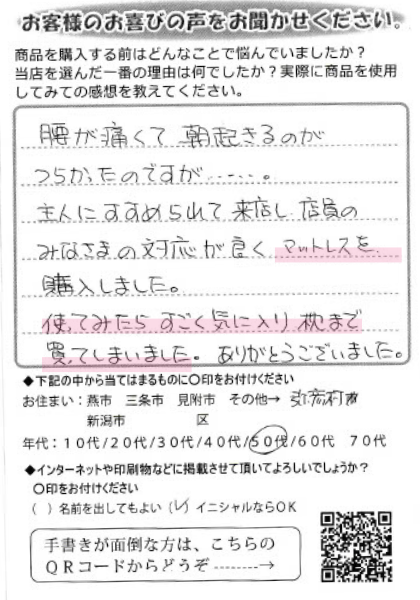 お客様のお喜びの声をお聞かせください。
商品を購入する前はどんなことで悩んでいましたか？
当店を選んだ一番の理由は何でしたか？実際に商品を使用
してみての感想を教えてください。
腰が痛くて 朝起きるのが
つらかったのですが……。
主人にすすめられて 来店し 店員の
みなさまの対応が良く マットレスを
購入しました。
使ってみたら すごく気に入り 枕まで
買ってしまいました。 ありがとうございました。
◆下記の中から当てはまるものに〇印をお付けください
お住まい：燕市 三条市 見附市 その他→ 弥彦村
新潟市 区
年代：１０代/２０代/３０代/４０代/５０代/６０代 ７０代
◆インターネットや印刷物などに掲載させて頂いてよろしいでしょうか？
〇印をお付けください
（ ）名前を出してもよい （レ）イニシャルならＯＫ
手書きが面倒な方は、こちらの
ＱＲコードからどうぞ -------→